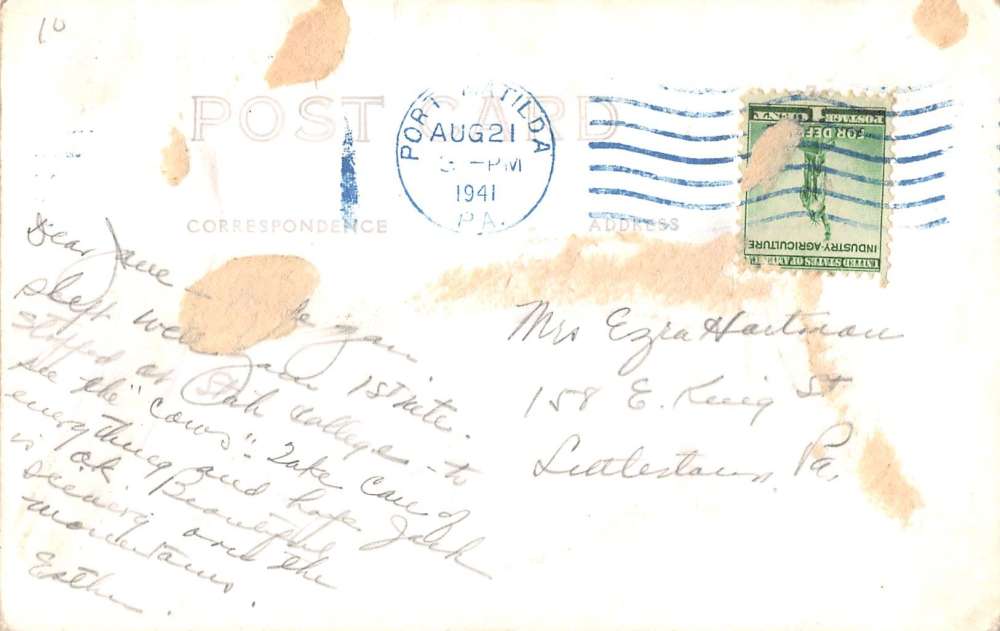 10
POST CARD
PORT MATILDA
AUG 21
PM
1941
PA.
1 CENT
POSTAGE
FOR DEFENSE
INDUSTRY-AGRICULTURE
UNITED STATES OF AMERICA
CORRESPONDENCE
ADDRESS
Dear Jane -
slept well 1st nite.
Stopped at State College - to
see the "cows". Take care of
everything and hope Jack
is ok. Beautiful
scenery over the
mountains.
Esther.
Mrs Ezra Hartman
158 E. King St
Littlestown, Pa.